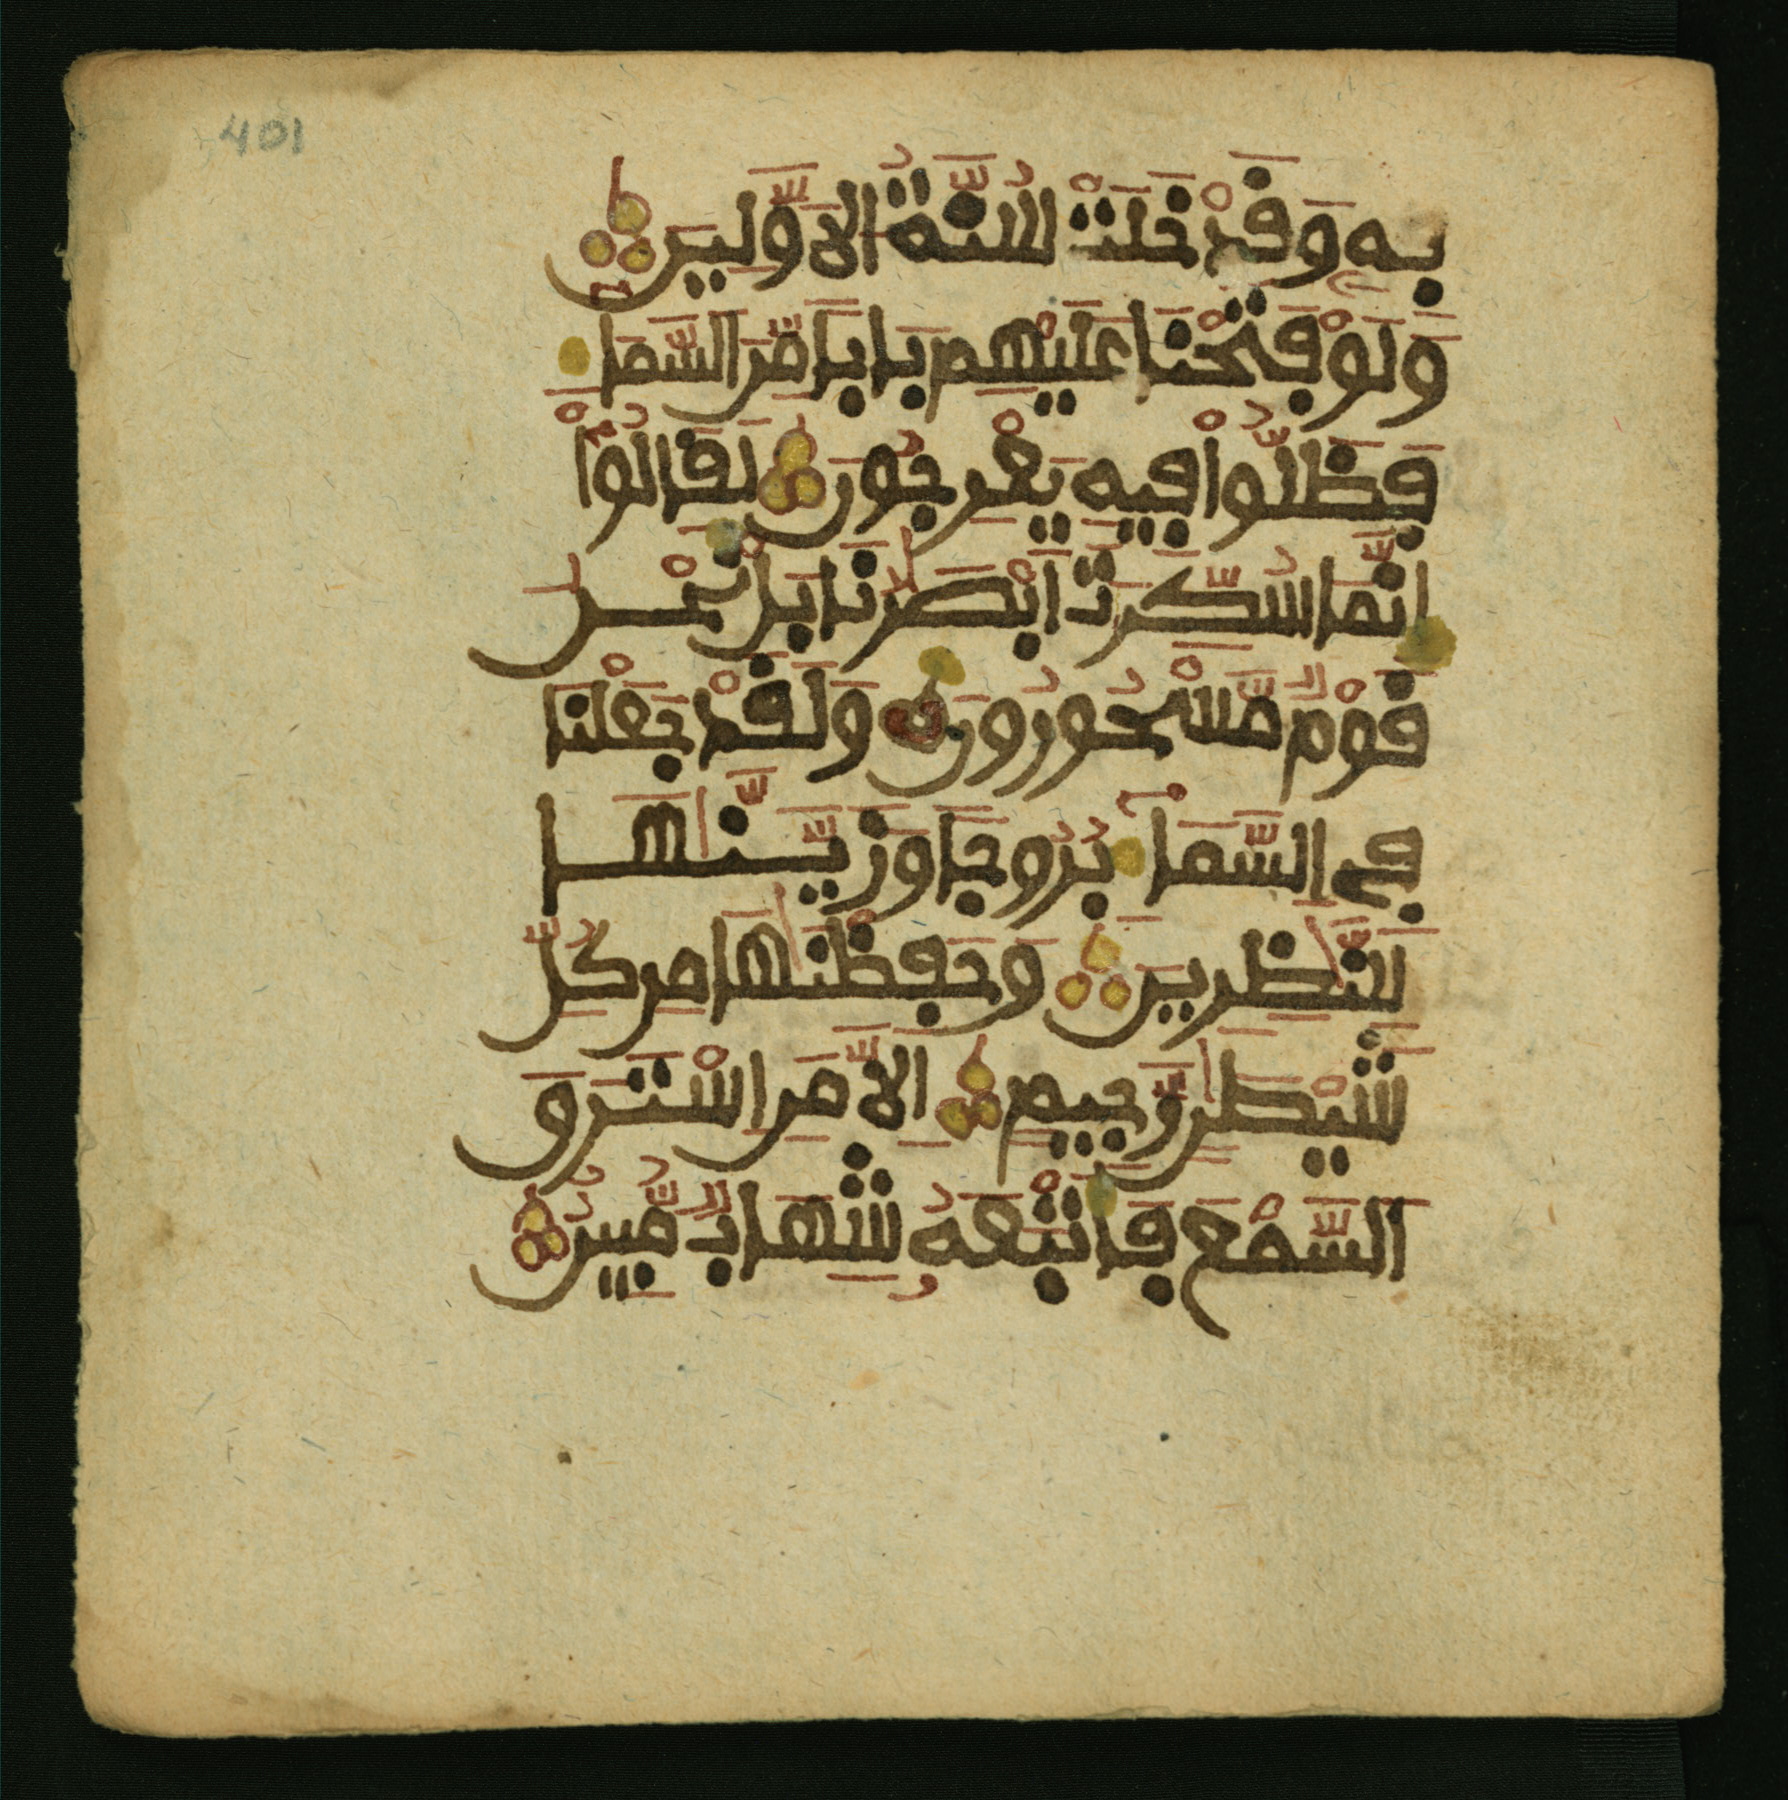 401
بِهِ وَقَدْ خَلَتْ سُنَّةُ الَاوَّلِينَ
وَلَوْ فَتَحْنَا عَلَيْهِم بَابًا مِّنَ السَّمَا
فَظَلُّواْ فِيهِ يَعْرُجُونَ لَقَالُوٓاْ
إِنَّمَا سُكِّرَتَ اَبْصَٰرُنَا بَلْ نَحْنُ
قَوْمٌ مَّسْحُورُونَ وَلَقَدْ جَعَلْنَا
فِي السَّمَآ بُرُوجًا وَزَيَّنَّٰهَا
لِلنَّٰظِرِينَ وَحَفِظْنَٰهَا مِن كُلِّ
شَيْطَٰنٍ رَّجِيمٍ اِلَّا مَنِ اسْتَرَقَ
السَّمْعَ فَأَتْبَعَهُ شِهَابٌ مُّبِينٌ